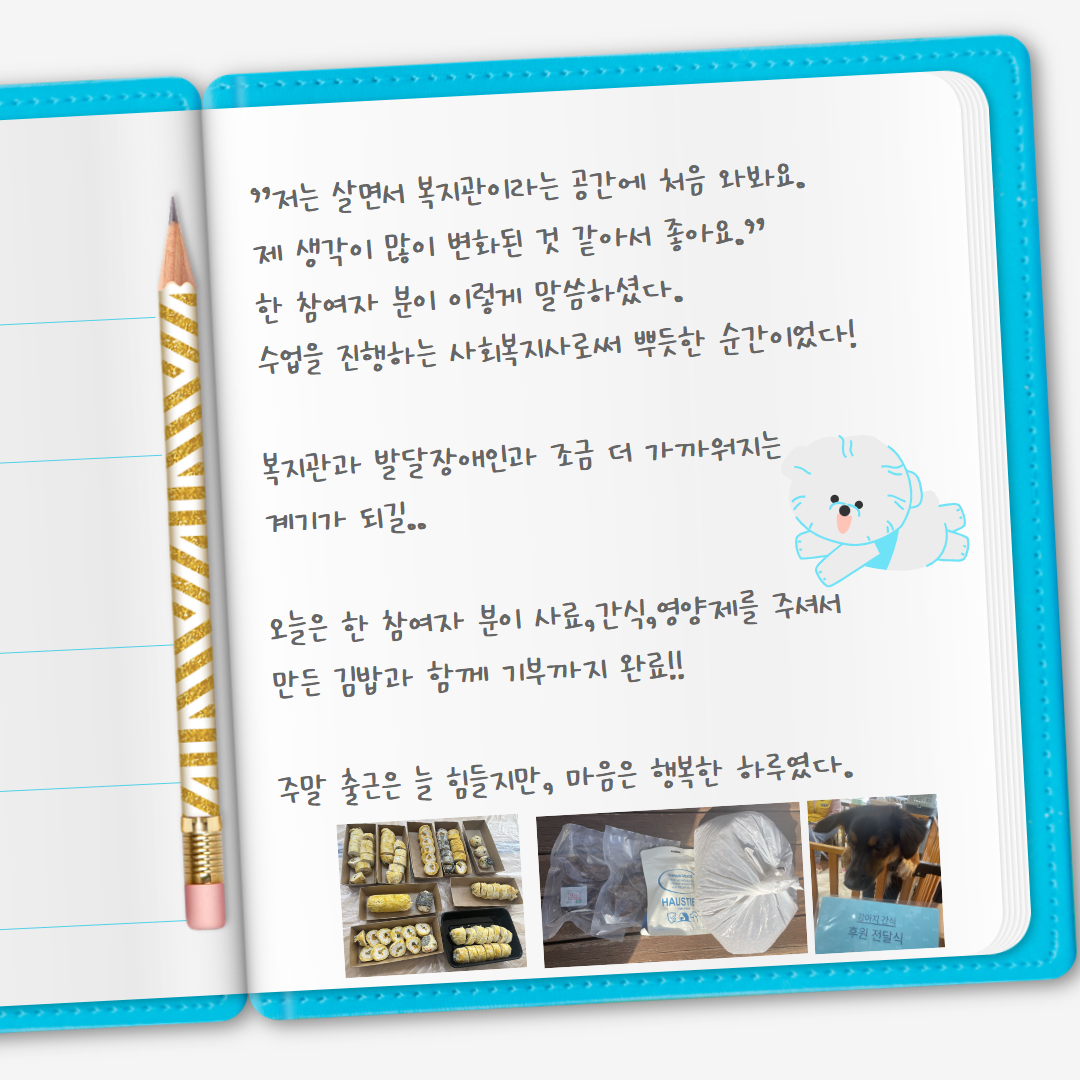 ”저는 살면서 복지관이라는 공간에 처음 와봐요.
제 생각이 많이 변화된 것 같아서 좋아요.”
한 참여자 분이 이렇게 말씀하셨다.
수업을 진행하는 사회복지사로써 뿌듯한 순간이었다!
복지관과 발달장애인과 조금 더 가까워지는
계기가 되길..
오늘은 한 참여자 분이 사료,간식,영양제를 주셔서
만든 김밥과 함께 기부까지 완료!!
주말 출근은 늘 힘들지만, 마음은 행복한 하루였다.
강아지 간식
후원 전달식